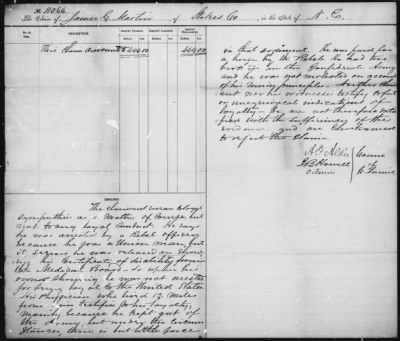 No 11066.
The Claim of James G. Martin, of Stokes Co, in the State of N. C.
No. of Item.
DESCRIPTION.
Amount Claimed.
Amount Allowed.
Amount Disallowed.
This Claim amounts 444 00 444 00
REMARKS.
The Claimant swears Strong
sympathies as a Matter of Course but
not to any loyal Conduct. He says
he was arrested by a Rebel officer
because he was a Union man, but
it seems he was released on show-
ing his Certificate of disability from
the Medical Board. So upon his
own showing he was not arrested
for being loyal to the United States
His Physician who lived 15 Miles
from him testifies to his loyalty,
mainly because he kept out of
the Army, but under the Circum
stances, there is but little force
in that argument. He was paid for
a horse by the Rebels he had two
in the Confederate Army
and he was not molested on account
of his Union principles. Neither claim
ant nor his witnesses testify to full
or unequivocal indications of
loyalty. We are not therefore satis
fied with the sufficiency of the
evidence and are Constrained
to reject the claim.
A. O. Aldis
J B Howell
O Ferriss
Comrs
of Claims